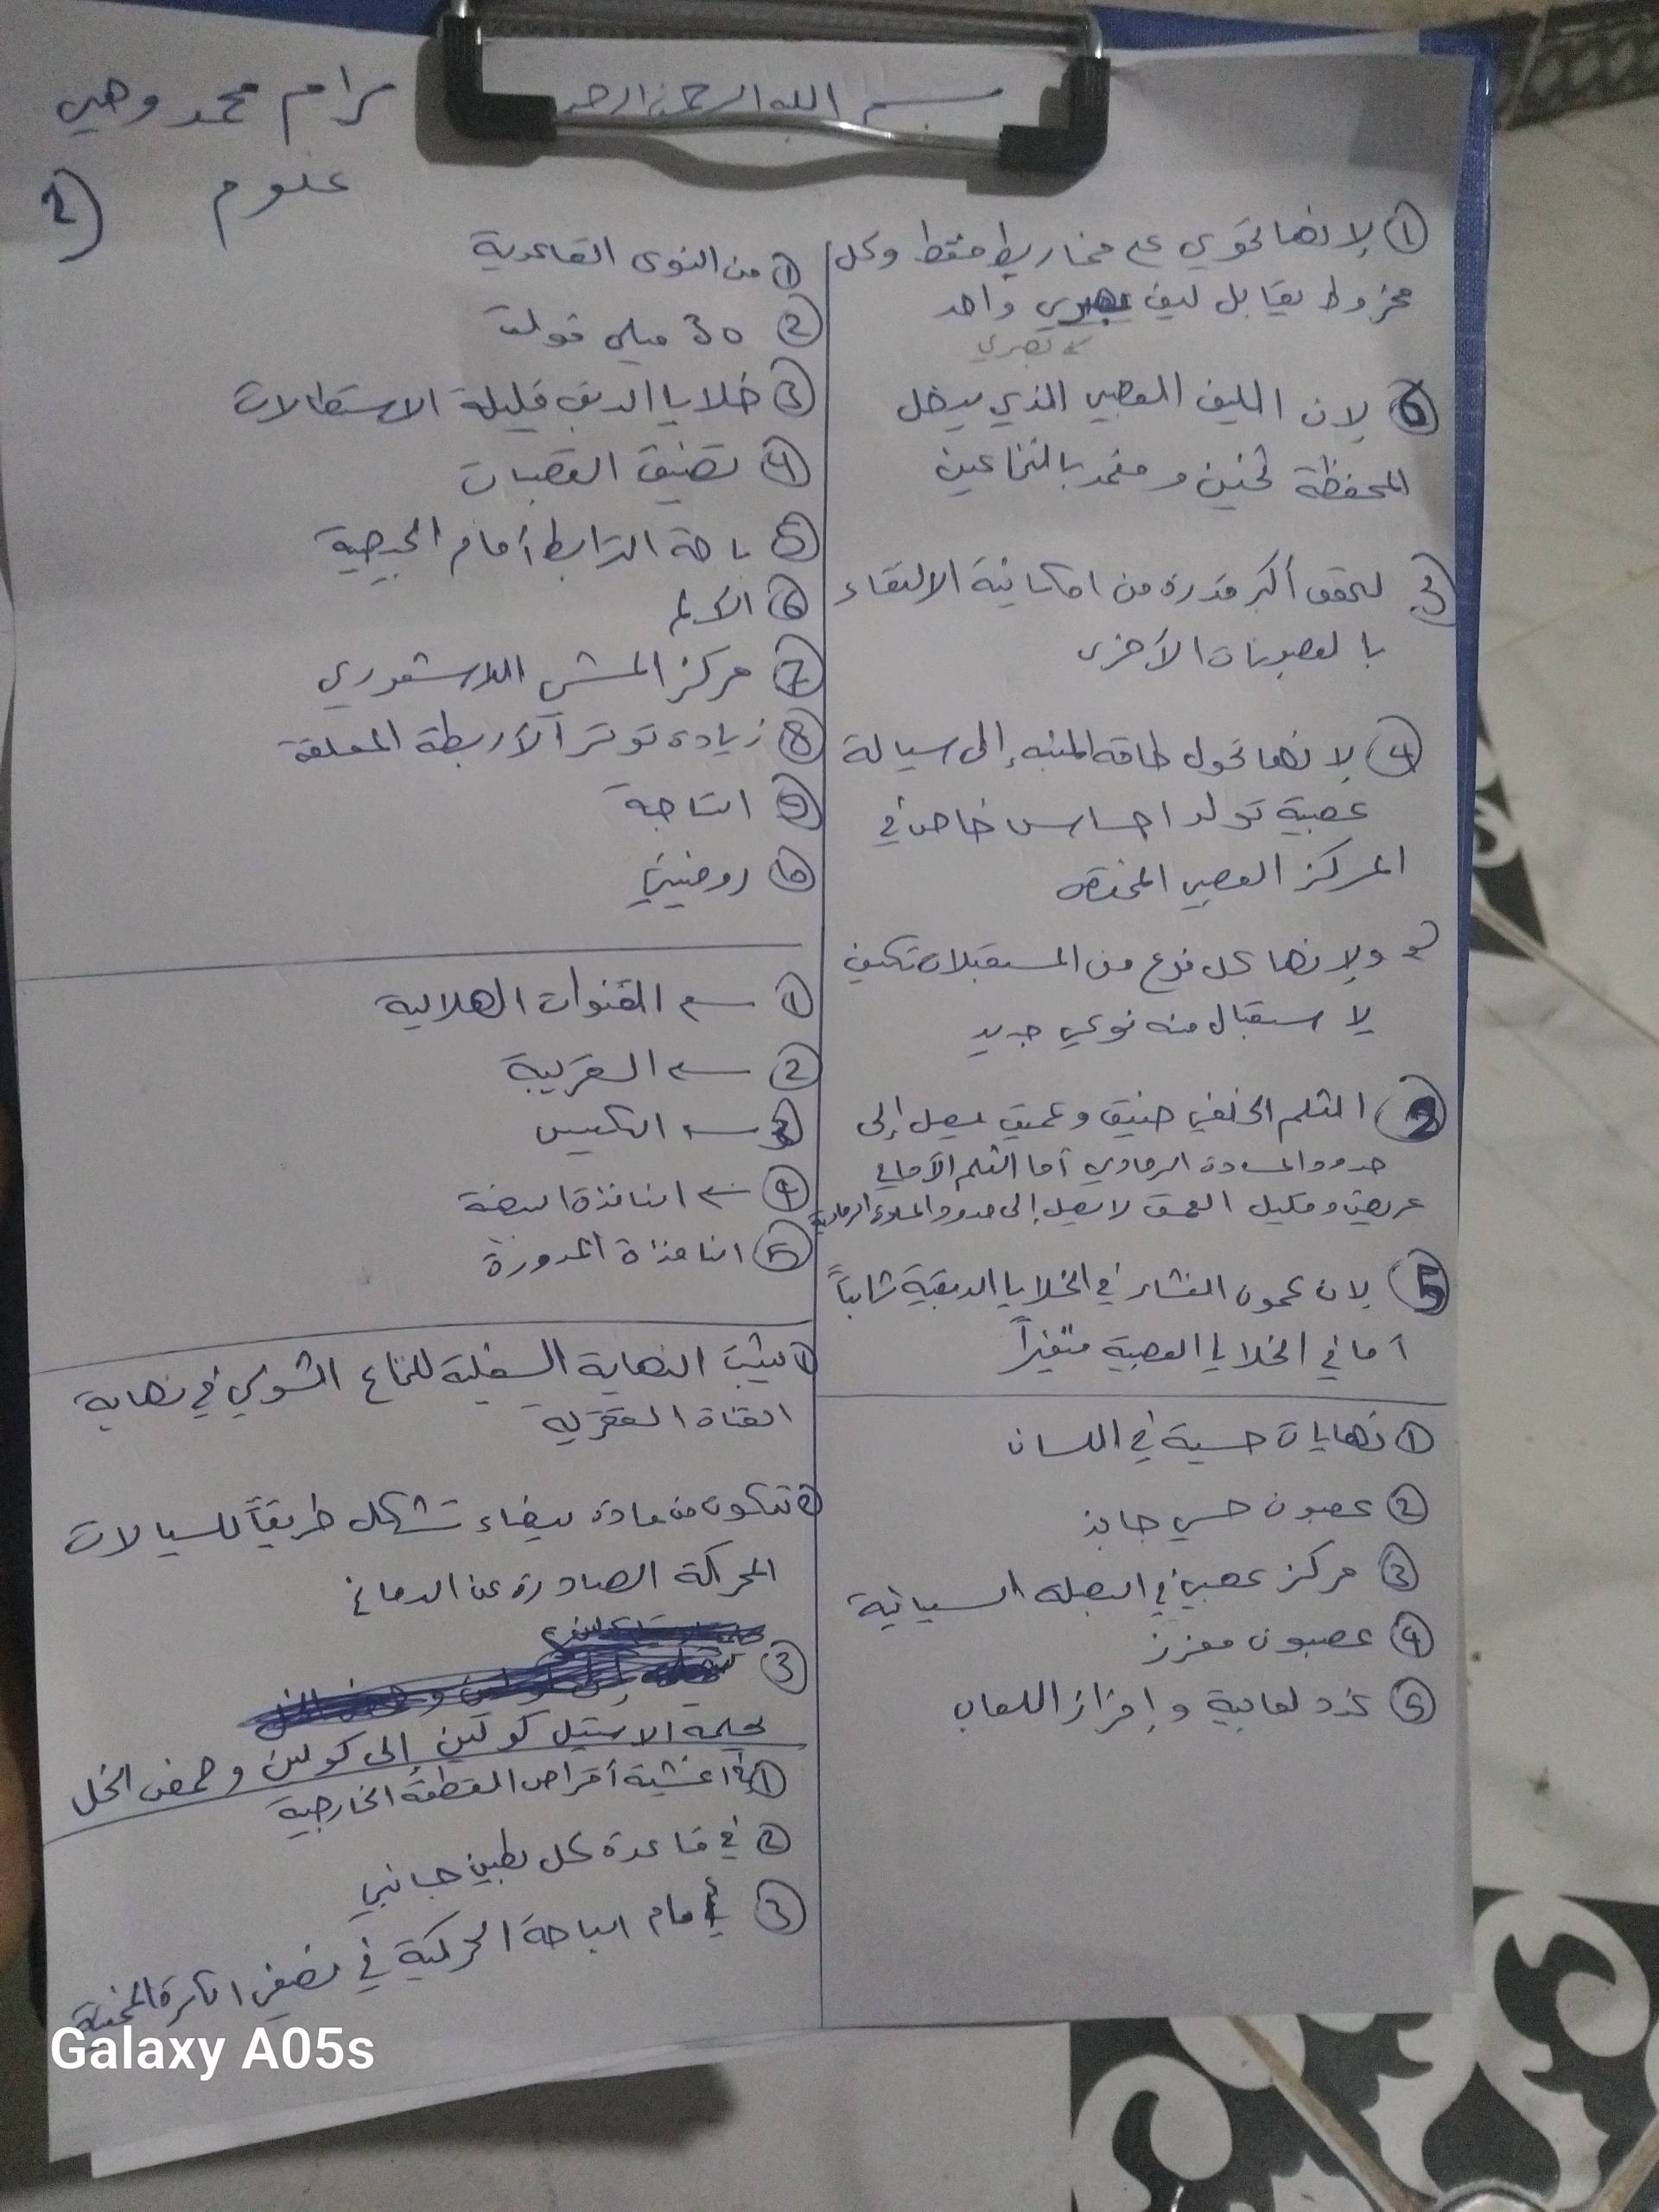 بسم الله الرحمن الرحيم
مرام محمد وهبي
علوم
(2
① لانها تحوي على مخاريط فقط وكل
مخروط يقابل ليف بصري واحد
بصري
⑥ لان الليف العصبي الذي يدخل
المحفظة ثخين ومغمد بالنخاعين
③ ليحقق أكبر قدرة من امكانية الالتقاء
بالعصبونات الأخرى
④ لانها تحول طاقة المنبه إلى سيالة
عصبية تولد احساس خاص في
المركز العصبي المختص
ولانها كل نوع من المستقبلات تكيف
لاستقبال منبه نوعي جديد
② الثلم الخلفي ضيق وعميق يصل إلى
حدود المادة الرمادي أما الثلم الأمامي
عريض وقليل العمق لا يصل إلى حدود المادة الرمادية
⑤ لان كمون الغشاء في الخلايا الدبقية ثابتاً
أما في الخلايا العصبية متغيراً
① نهايات حسية في اللسان
② عصبون حسي جابذ
③ مركز عصبي في البصلة السيسائية
④ عصبون مفرز
⑤ غدد لعابية وإفراز اللعاب
① من النوى القاعدية
② 30 ميلي فولت
③ خلايا الدبق قليلة الاستطالات
④ تضيق القصبات
⑤ باحة الترابط أمام الجبهية
⑥ الألم
⑦ مركز المشي اللاشعوري
⑧ زيادة توتر الأربطة المعلقة
⑨ انتاجة
⑩ رودبسين
① القنوات الهلالية
② القريبة
③ الكييس
④ ← النافذة البيضية
⑤ النافذة المدورة
① يثبت النهاية السفلية للنخاع الشوكي في نهاية
القناة الفقرية
② تتكون من مادة بيضاء تشكل طريقاً للسيالات
المحركة الصادرة عن الدماغ
③
حلمهة الاستيل كولين إلى كولين وحمض الخل
① في اغشية أقراص القطعة الخارجية
② في قاعدة كل بطين جانبي
③ أمام الباحة الحركية في نصفي الكرة المخية
Galaxy A05s